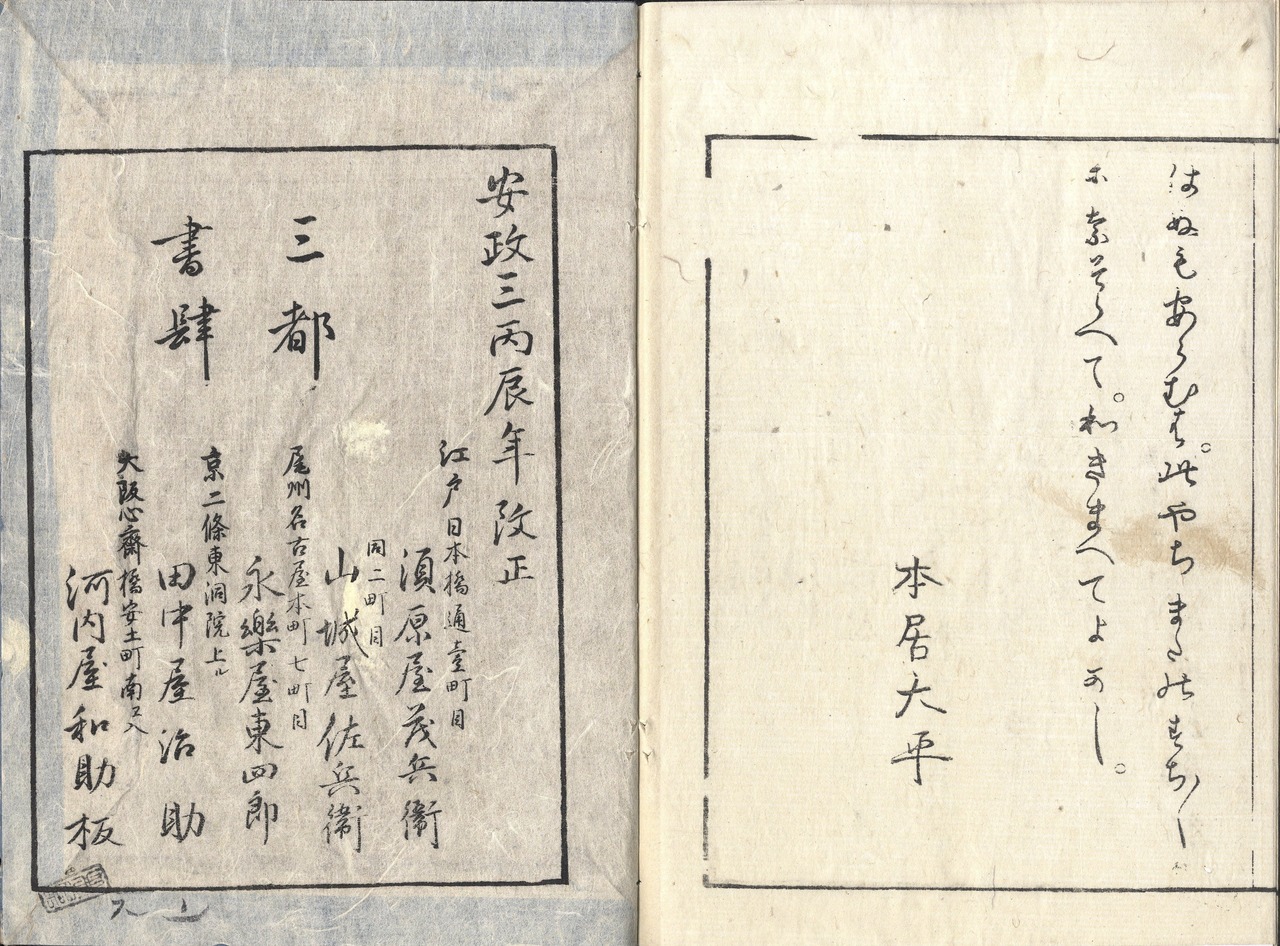 はぬも安らむを。此やちまたのすぢ〳〵
になそらへて。わきまへてよかし。
本居大平
安政三丙辰年改正
三都
書肆
江戸日本橋通壹町目
須原屋茂兵衞
同二町目
山城屋佐兵衞
尾州名古屋本町七町目
永樂屋東四郎
京二條東洞院上ル
田中屋治助
大阪心齋橋安土町南ヘ入
河内屋和助板